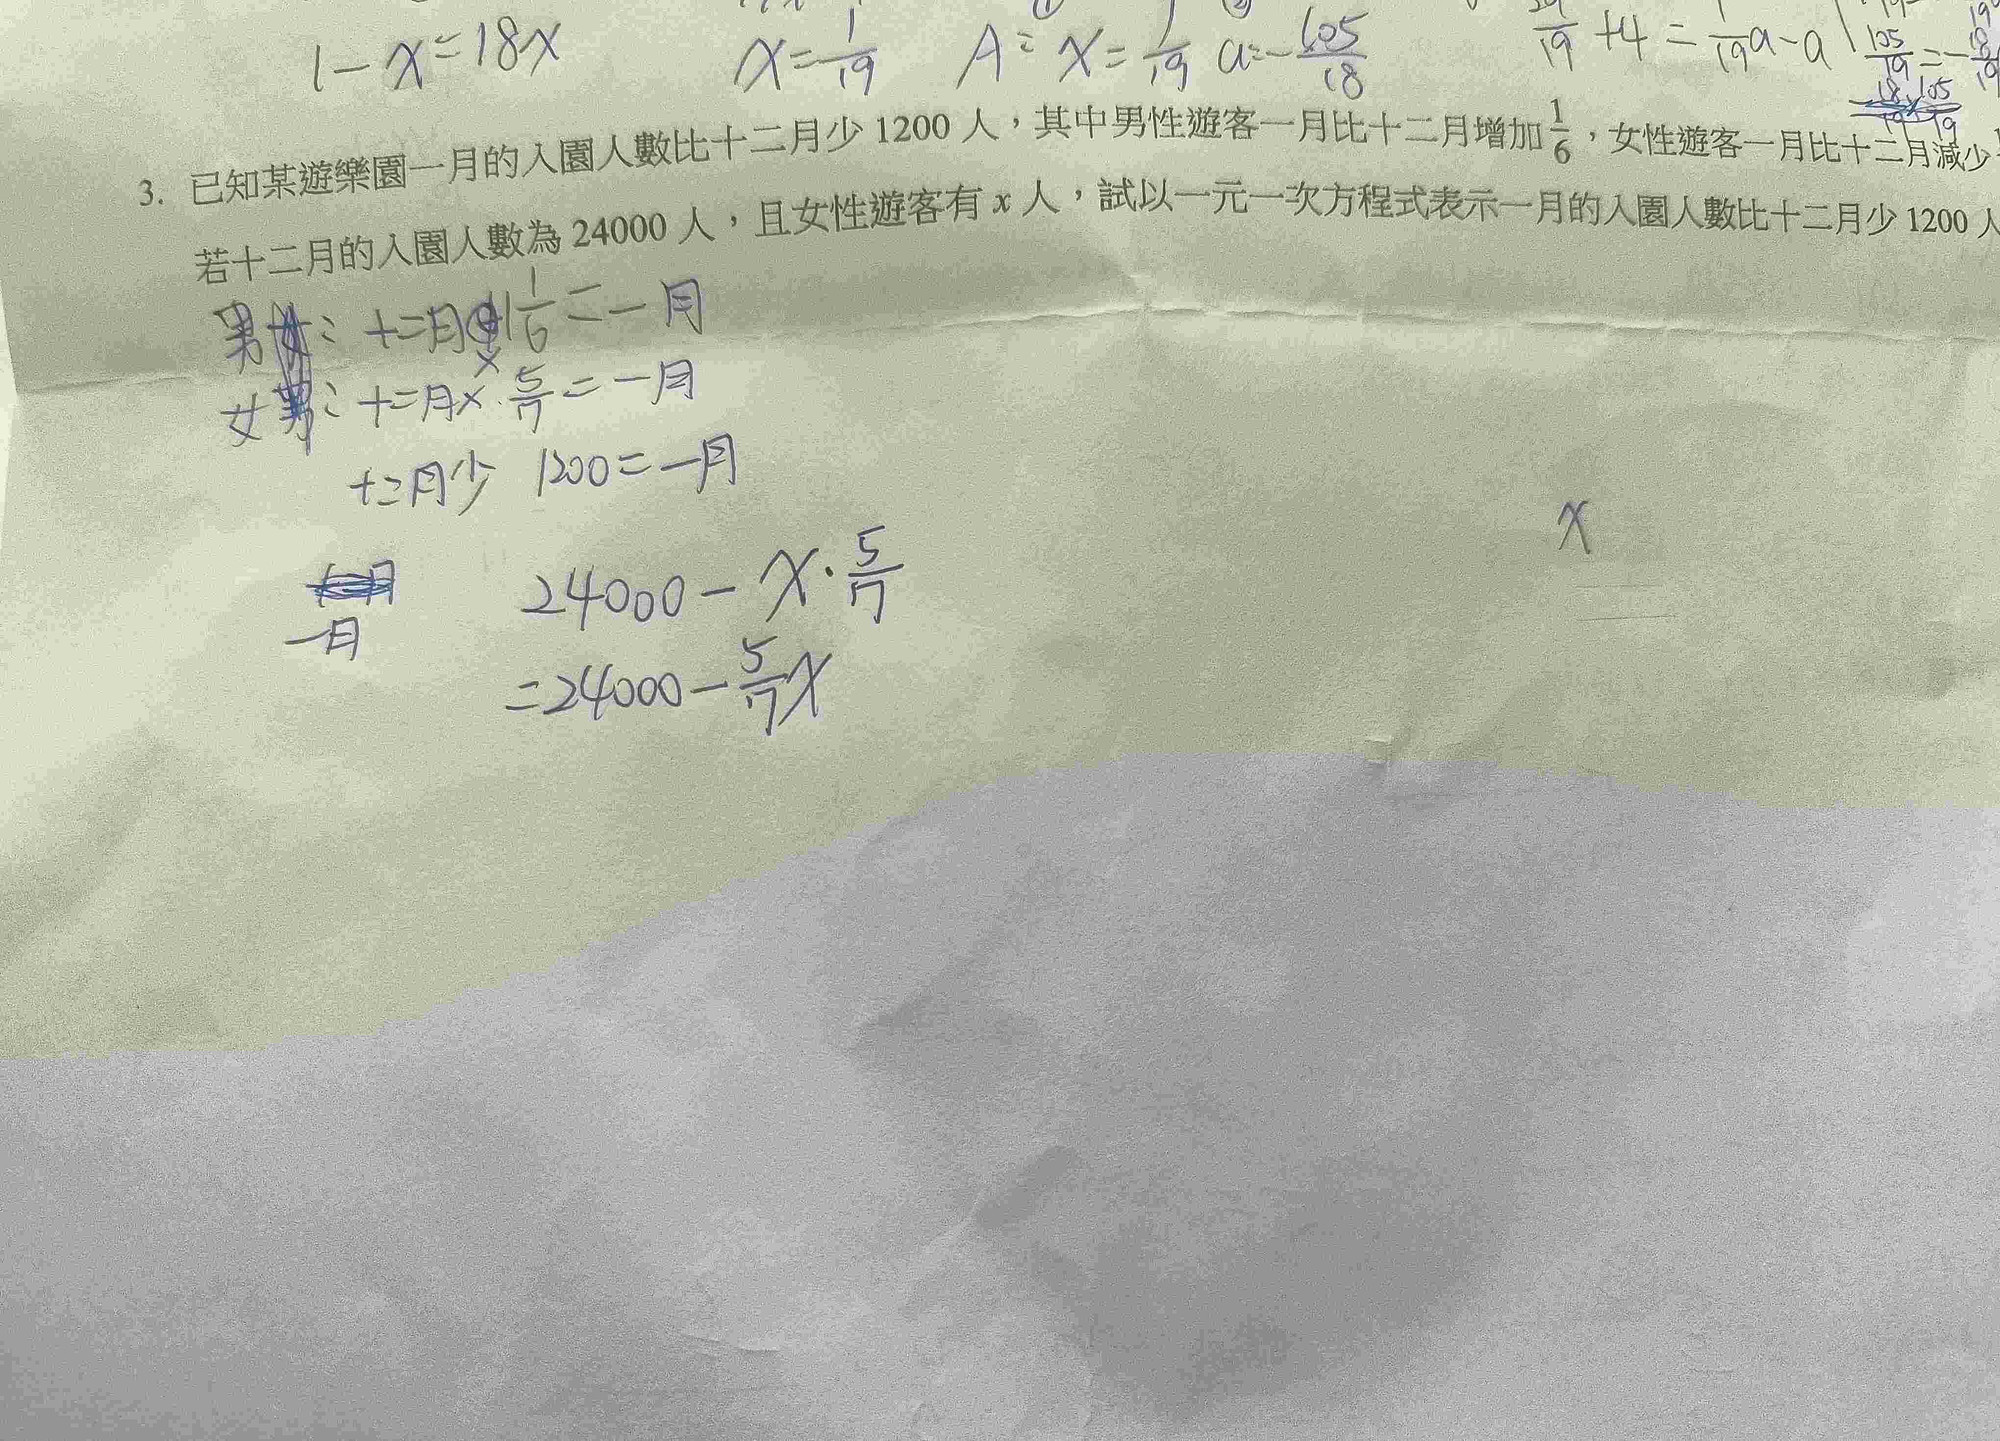 1-x=18x x=1/19 A: x=1/19 a=-105/18 /19+4=1/19a-a 105/19=-18/19
3. 已知某遊樂園一月的入園人數比十二月少 1200 人，其中男性遊客一月比十二月增加1/6，女性遊客一月比十二月減少
若十二月的入園人數為 24000 人，且女性遊客有 x 人，試以一元一次方程式表示一月的入園人數比十二月少 1200 人
男: 十二月x1 1/6=一月
女: 十二月x 5/7=一月
十二月少 1200=一月
x
一月 24000-x·5/7
=24000-5/7x